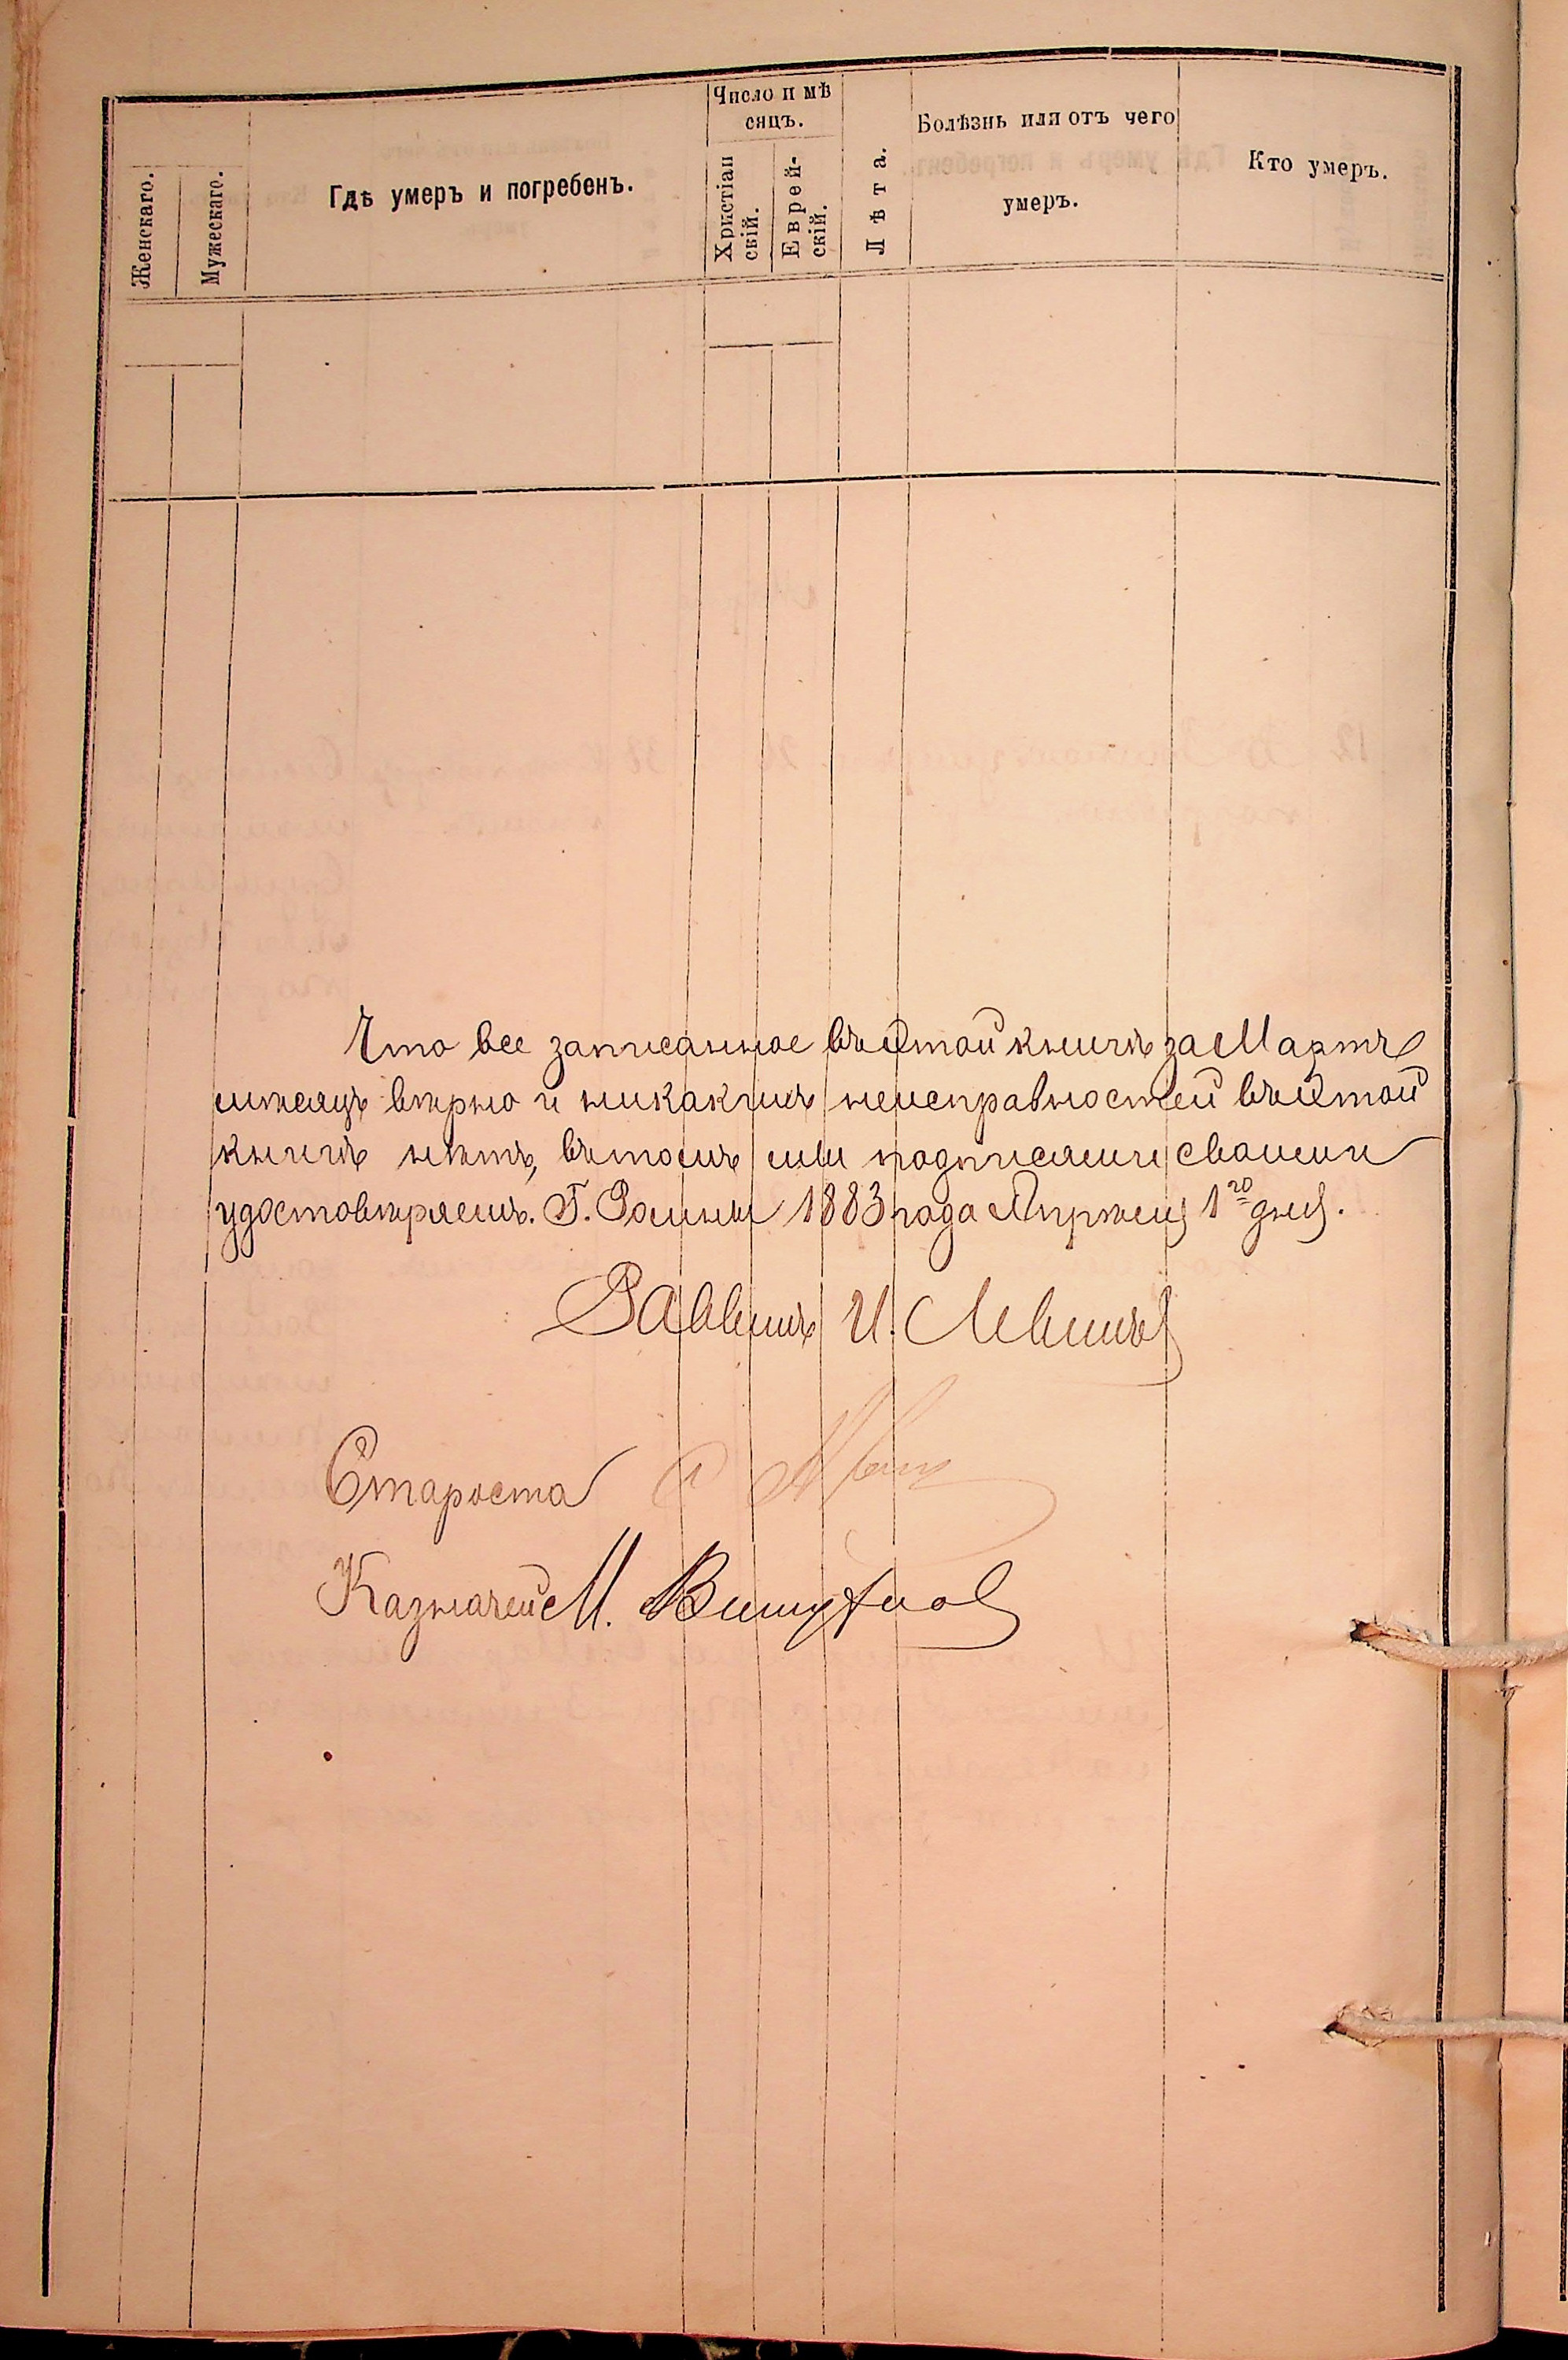 Женскаго.
Мужескаго.
Гдѣ умеръ и погребенъ.
Число и мѣ
сяцъ.
Христіан
скій.
Еврей-
скій.
Лѣта.
Болѣзнь или отъ чего
умеръ.
Кто умеръ.
Что все записанное въ этой книгѣ за Мартъ
мѣсяцъ вѣрно и никакихъ неисправностей въ этой
книгѣ нѣтъ, въ томъ мы подписями своими
удостовѣряемъ. Г. Ромны 1883 года Апрѣля 1го дня.
Раввинъ И. Левинъ
Староста
Казначей М.